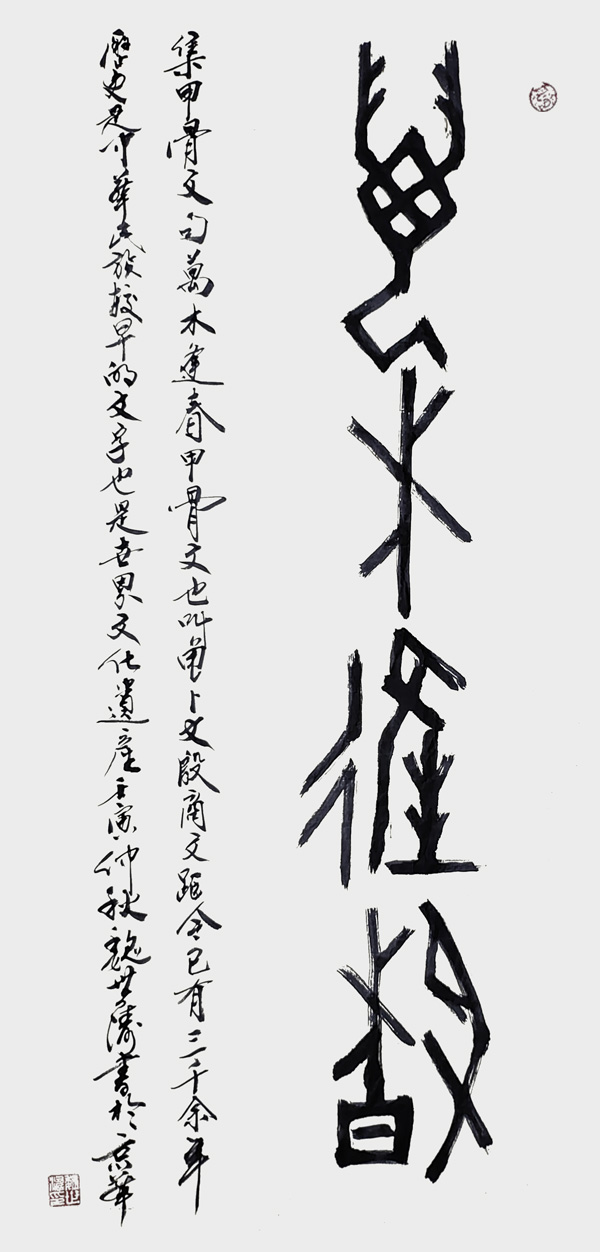 萬木逢春
集甲骨文句萬木逢春甲骨文也叫龜卜文殷商文距今已有三千余年
歷史是中華民族較早的文字也是世界文化遺產壬寅仲秋魏世濤書於京華